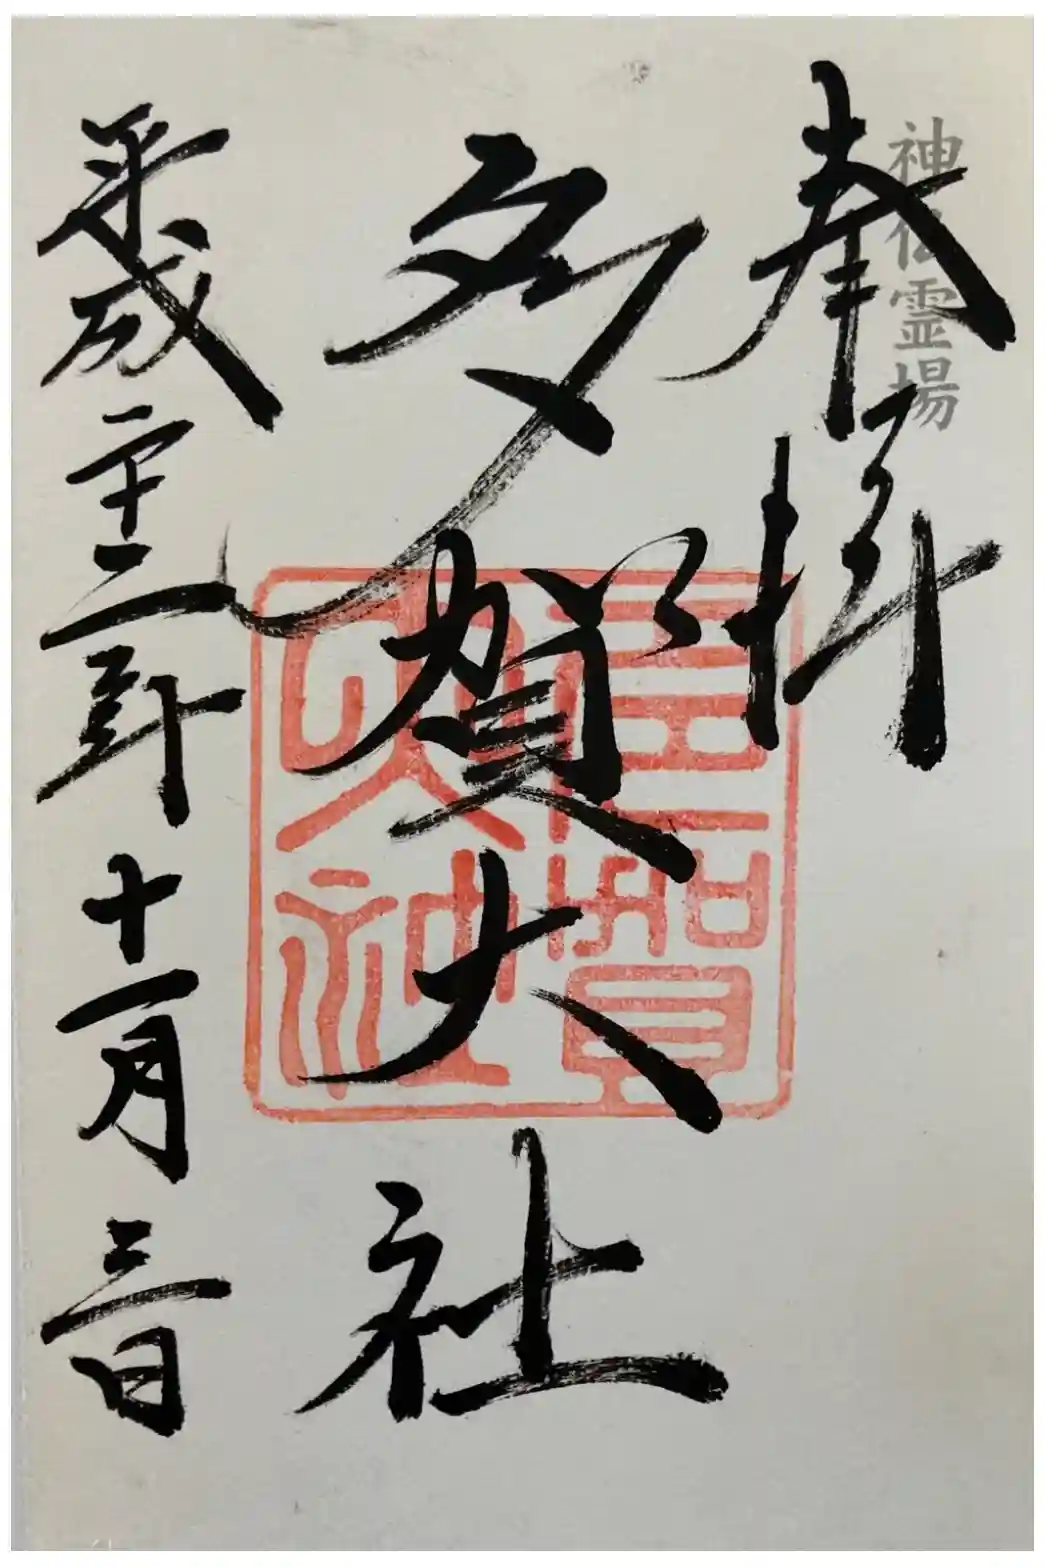 神仏霊場
奉拝
多賀大社
平成二十二年十一月三日
多賀
大社